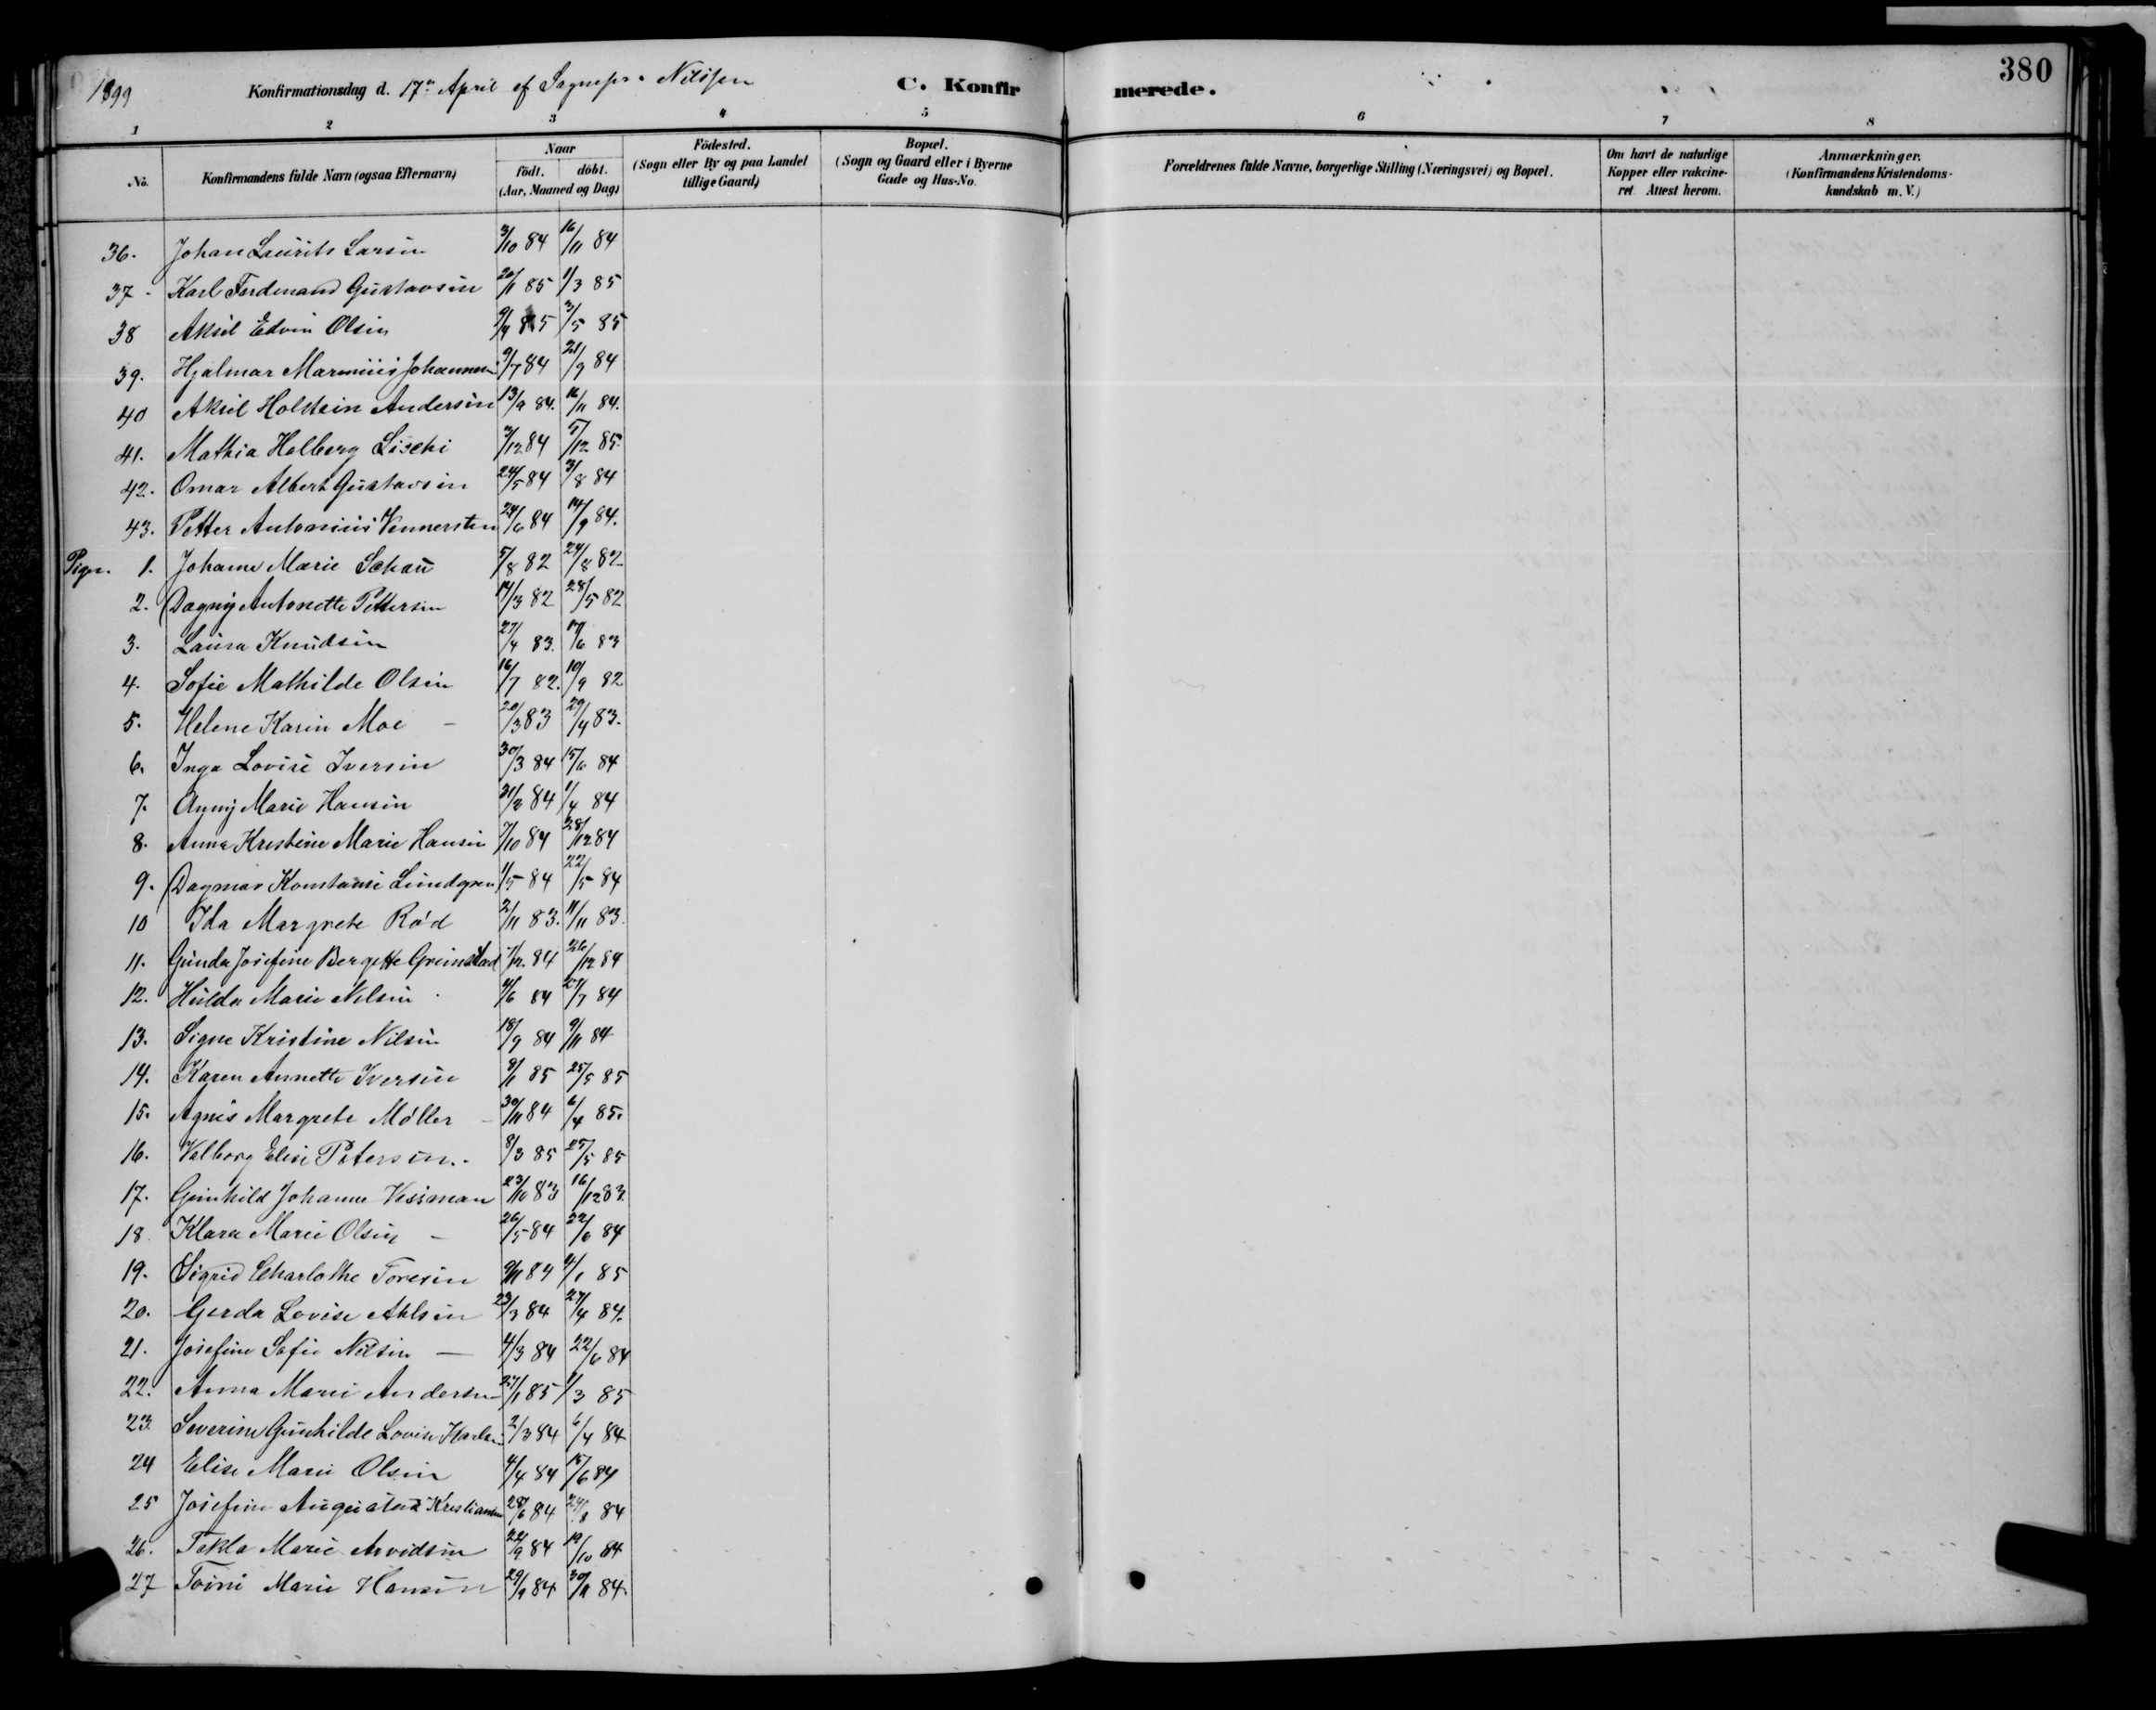 380
1899 Konfirmationsdag d. 17de April af Sognepr. Nilssen C. Konfirmerede.
1 2 3 4 5 6 7 8
No. Konfirmandens fulde Navn (ogsaa Efternavn) Naar födt. döbt. (Aar, Maaned og Dag) Födested. (Sogn eller By og paa Landet tillige Gaard) Bopæl. (Sogn og Gaard eller i Byerne Gade og Hus-No. Forældrenes fulde Navne, borgerlige Stilling (Næringsvei) og Bopæl. Om havt de naturlige Kopper eller vakcineret Attest herom. Anmærkninger. (Konfirmandens Kristendomskundskab m. V.)
36. Johan Laurits Larsen 3/10 84 16/11 84
37. Karl Ferdinand Gustavsen 20/1 85 1/3 85
38 Aksel Edvin Olsen 9/4 85 3/5 85
39. Hjalmar Johannsen 9/7 84 21/9 84
40 Aksel Holstein Andersen 13/9 84. 16/11 84.
41. Mathia Holberg 3/12 84 5/12 85.
42. Omar Albert Gustavsen 24/5 84 3/8 84
43. Petter Antonius Vennersten 24/6 84 14/9 84.
Piger. 1. Johanne Marie Schau 5/8 82 24/8 82
2. Dagny Antonette Pettersen 14/3 82 28/5 82
3. Laura Knudsen 27/4 83. 17/6 83
4. Sofie Mathilde Olsen 16/7 82. 10/9 82
5. Helene Karin Moe – 20/3 83 29/4 83.
6. Inga Lovise Iversen 30/3 84 15/6 84
7. Marie Hansen 84 1/4 84
8. Anna Kristine Marie Hansen 7/10 84 28/12 84
9. Dagmar Konstanse Lundgren 1/5 84 22/5 84
10 Ida Margrete Rød 2/11 83. 11/11 83.
11. Gunda Josefine Bergette Grimstad /12 84 26/12 84
12. Hulda Marie Nilsen 4/6 84 27/7 84
13. Signe Kristine Nilsen 18/9 84 9/11 84
14. Karen Annette Iversen 9/1 85 25/5 85
15. Agnes Margrete Møller – 30/11 84 6/4 85.
16. Valborg Elise Petersen. 8/3 85 25/5 85
17. Gunhild Johanne Vessman 23/10 83 16/12 83.
18. Klara Marie Olsen – 26/5 84 22/6 84
19. Sigrid Charlothe Toresen 9/11 84 4/1 85
20. Gerda Lovise Ahlsen 23/3 84 27/4 84.
21. Josefine Sofie Nilsen – 4/3 84 22/6 84
22. Anna Marie Andersen 27/1 85 1/3 85
23 Severine Gunhilde Lovise Karlsen 2/3 84 6/4 84
24 Elise Marie Olsen 4/4 84 15/6 84
25 Josefine Augusta Kristiansen 28/6 84 24/8 84
26. Tekla Marie Arvidsen 22/9 84 19/10 84
27 Toini Marie Hansen 29/9 84 30/11 84.